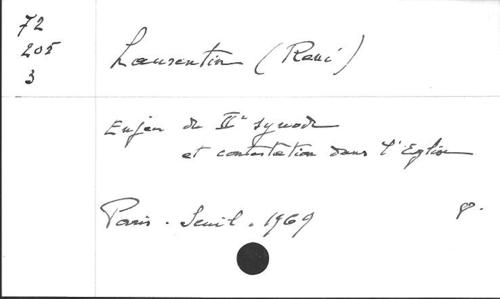 72
205
3
Laurentin (René)
Enjeu du IIe synode
et contestation dans l'Eglise
Paris. Seuil. 1969 8°.